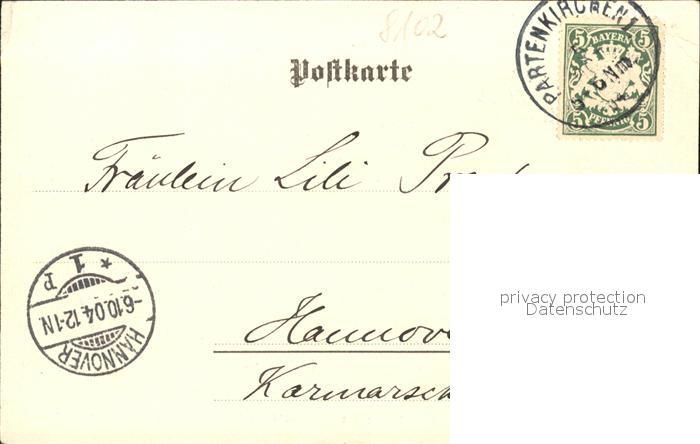 8102
Postkarte
PARTENKIRCHEN 1
5 BAYERN 5
5 PFENNIG 5
Fräulein Lili
privacy protection
Datenschutz
Hannove
Karmarsch
HANNOVER
-6.10.04.12-1N.
* 1 P